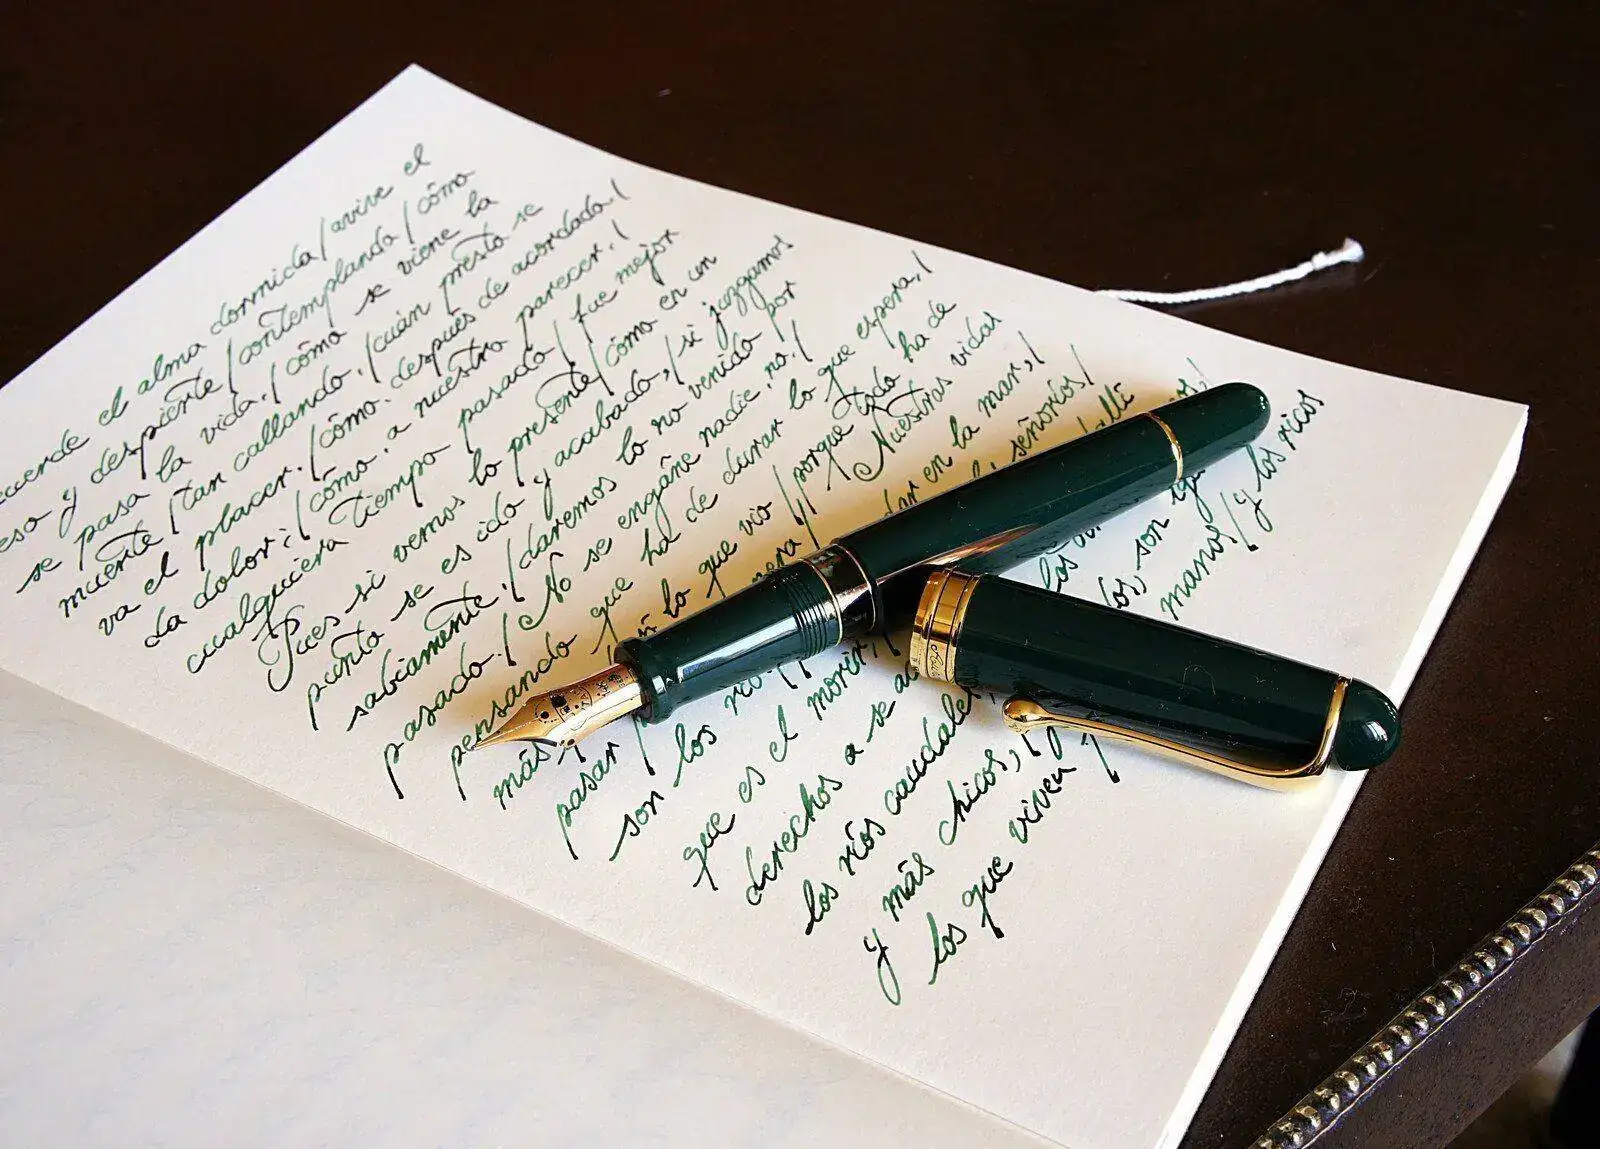 ecuerde el alma dormida/avive el
eso y despierte/contemplando/cómo
se pasa la vida,/cómo se viene la
muerte/tan callando./cuán presto se
va el placer./cómo, después de acordado,/
da dolor;/cómo, a nuestro parecer,/
cualquiera tiempo pasado/fue mejor
Pues si vemos lo presente/cómo en un
punto se es ido y acabado,/si juzgamos
sabiamente,/daremos lo no venido por
pasado./No se engañe nadie, no,/
pensando que ha de durar lo que espera,/
más lo que vio/porque todo ha de
pasar /Nuestras vidas
son los dar en la mar,/
que es el morir,/ señoríos/
derechos a se allí
los ríos los
y más chicos,/ son
los que viven manos/y los ricos